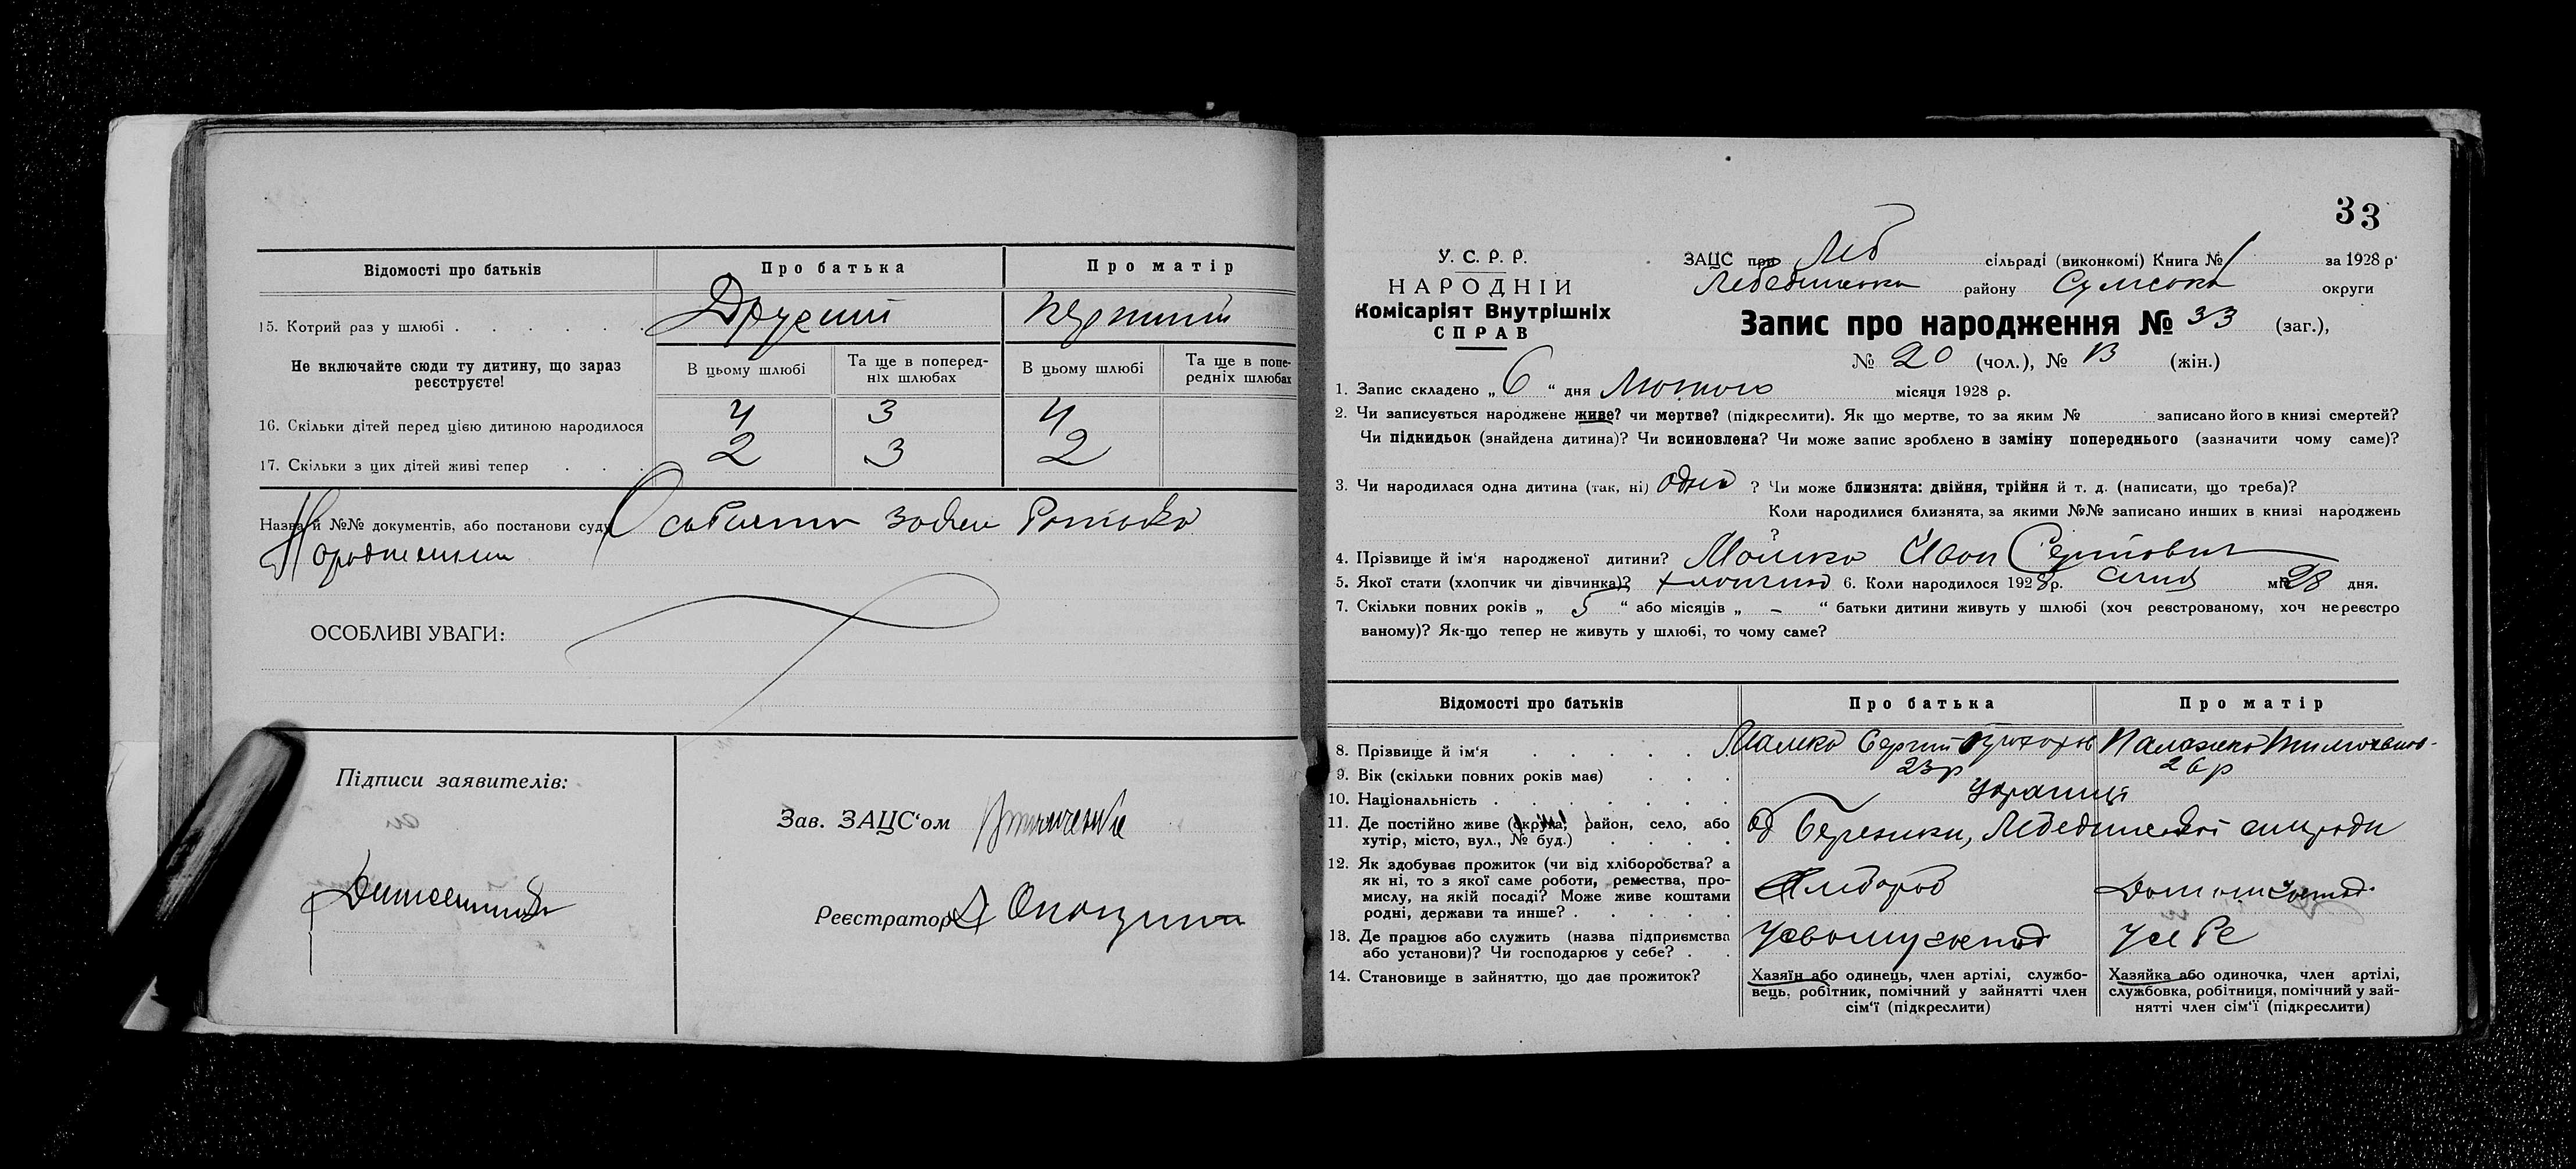 Відомості про батьків
Про батька
Про матір
15. Котрий раз у шлюбі . . . . . .
Другий
Перший
Не включайте сюди ту дитину, що зараз
реєструєте!
В цьому шлюбі
Та ще в поперед-
ніх шлюбах
В цьому шлюбі
Та ще в попе-
редніх шлюбах
16. Скільки дітей перед цією дитиною народилося
4 3 4
17. Скільки з цих дітей живі тепер . . .
2 3 2
Назва й №№ документів, або постанови суду
ОСОБЛИВІ УВАГИ:
Підписи заявителів:
Зав. ЗАЦС'ом
Реєстратор
33
У. С. Р. Р.
НАРОДНІЙ
Комісаріят Внутрішніх
СПРАВ
ЗАЦС при Леб сільраді (виконкомі) Книга № 1 за 1928 р.
Лебединського району Сумської округи
Запис про народження № 33 (заг.),
№ 20 (чол.), № 13 (жін.)
1. Запис складено „ 6 “ дня Лютого місяця 1928 р.
2. Чи записується народжене живе? чи мертве? (підкреслити). Як що мертве, то за яким № записано його в книзі смертей?
Чи підкидьок (знайдена дитина)? Чи всиновлена? Чи може запис зроблено в заміну попереднього (зазначити чому саме)?
3. Чи народилася одна дитина (так, ні) одна ? Чи може близнята: двійня, трійня й т. д. (написати, що треба)?
Коли народилися близнята, за якими №№ записано инших в книзі народжень
?
4. Прізвище й ім'я народженої дитини? Иван Сергійович
5. Якої стати (хлопчик чи дівчинка)? хлопчик 6. Коли народилося 1928 р. січня міс. 28 дня.
7. Скільки повних років „ 5 “ або місяців „ - “ батьки дитини живуть у шлюбі (хоч реєстрованому, хоч нереєстро
ваному)? Як-що тепер не живуть у шлюбі, то чому саме?
Відомості про батьків
Про батька
Про матір
8. Прізвище й ім'я . . . . .
Сергій
9. Вік (скільки повних років має) . . .
23р
26р
10. Національність . . . . . . .
Українці
11. Де постійно живе (округа, район, село, або
хутір, місто, вул., № буд.) . . . .
Лебединської сільради
12. Як здобуває прожиток (чи від хліборобства? а
як ні, то з якої саме роботи, ремества, про-
мислу, на якій посаді? Може живе коштами
родні, держави та инше? . . . . .
Хлібороб
Домашн господ.
13. Де працює або служить (назва підприємства
або установи)? Чи господарює у себе? . .
У своїому господ
У себе
14. Становище в зайняттю, що дає прожиток?
Хазяїн або одинець, член артілі, службо-
вець, робітник, помічний у зайнятті член
сім'ї (підкреслити)
Хазяйка або одиночка, член артілі,
службовка, робітниця, помічний у зай-
нятті член сім'ї (підкреслити)